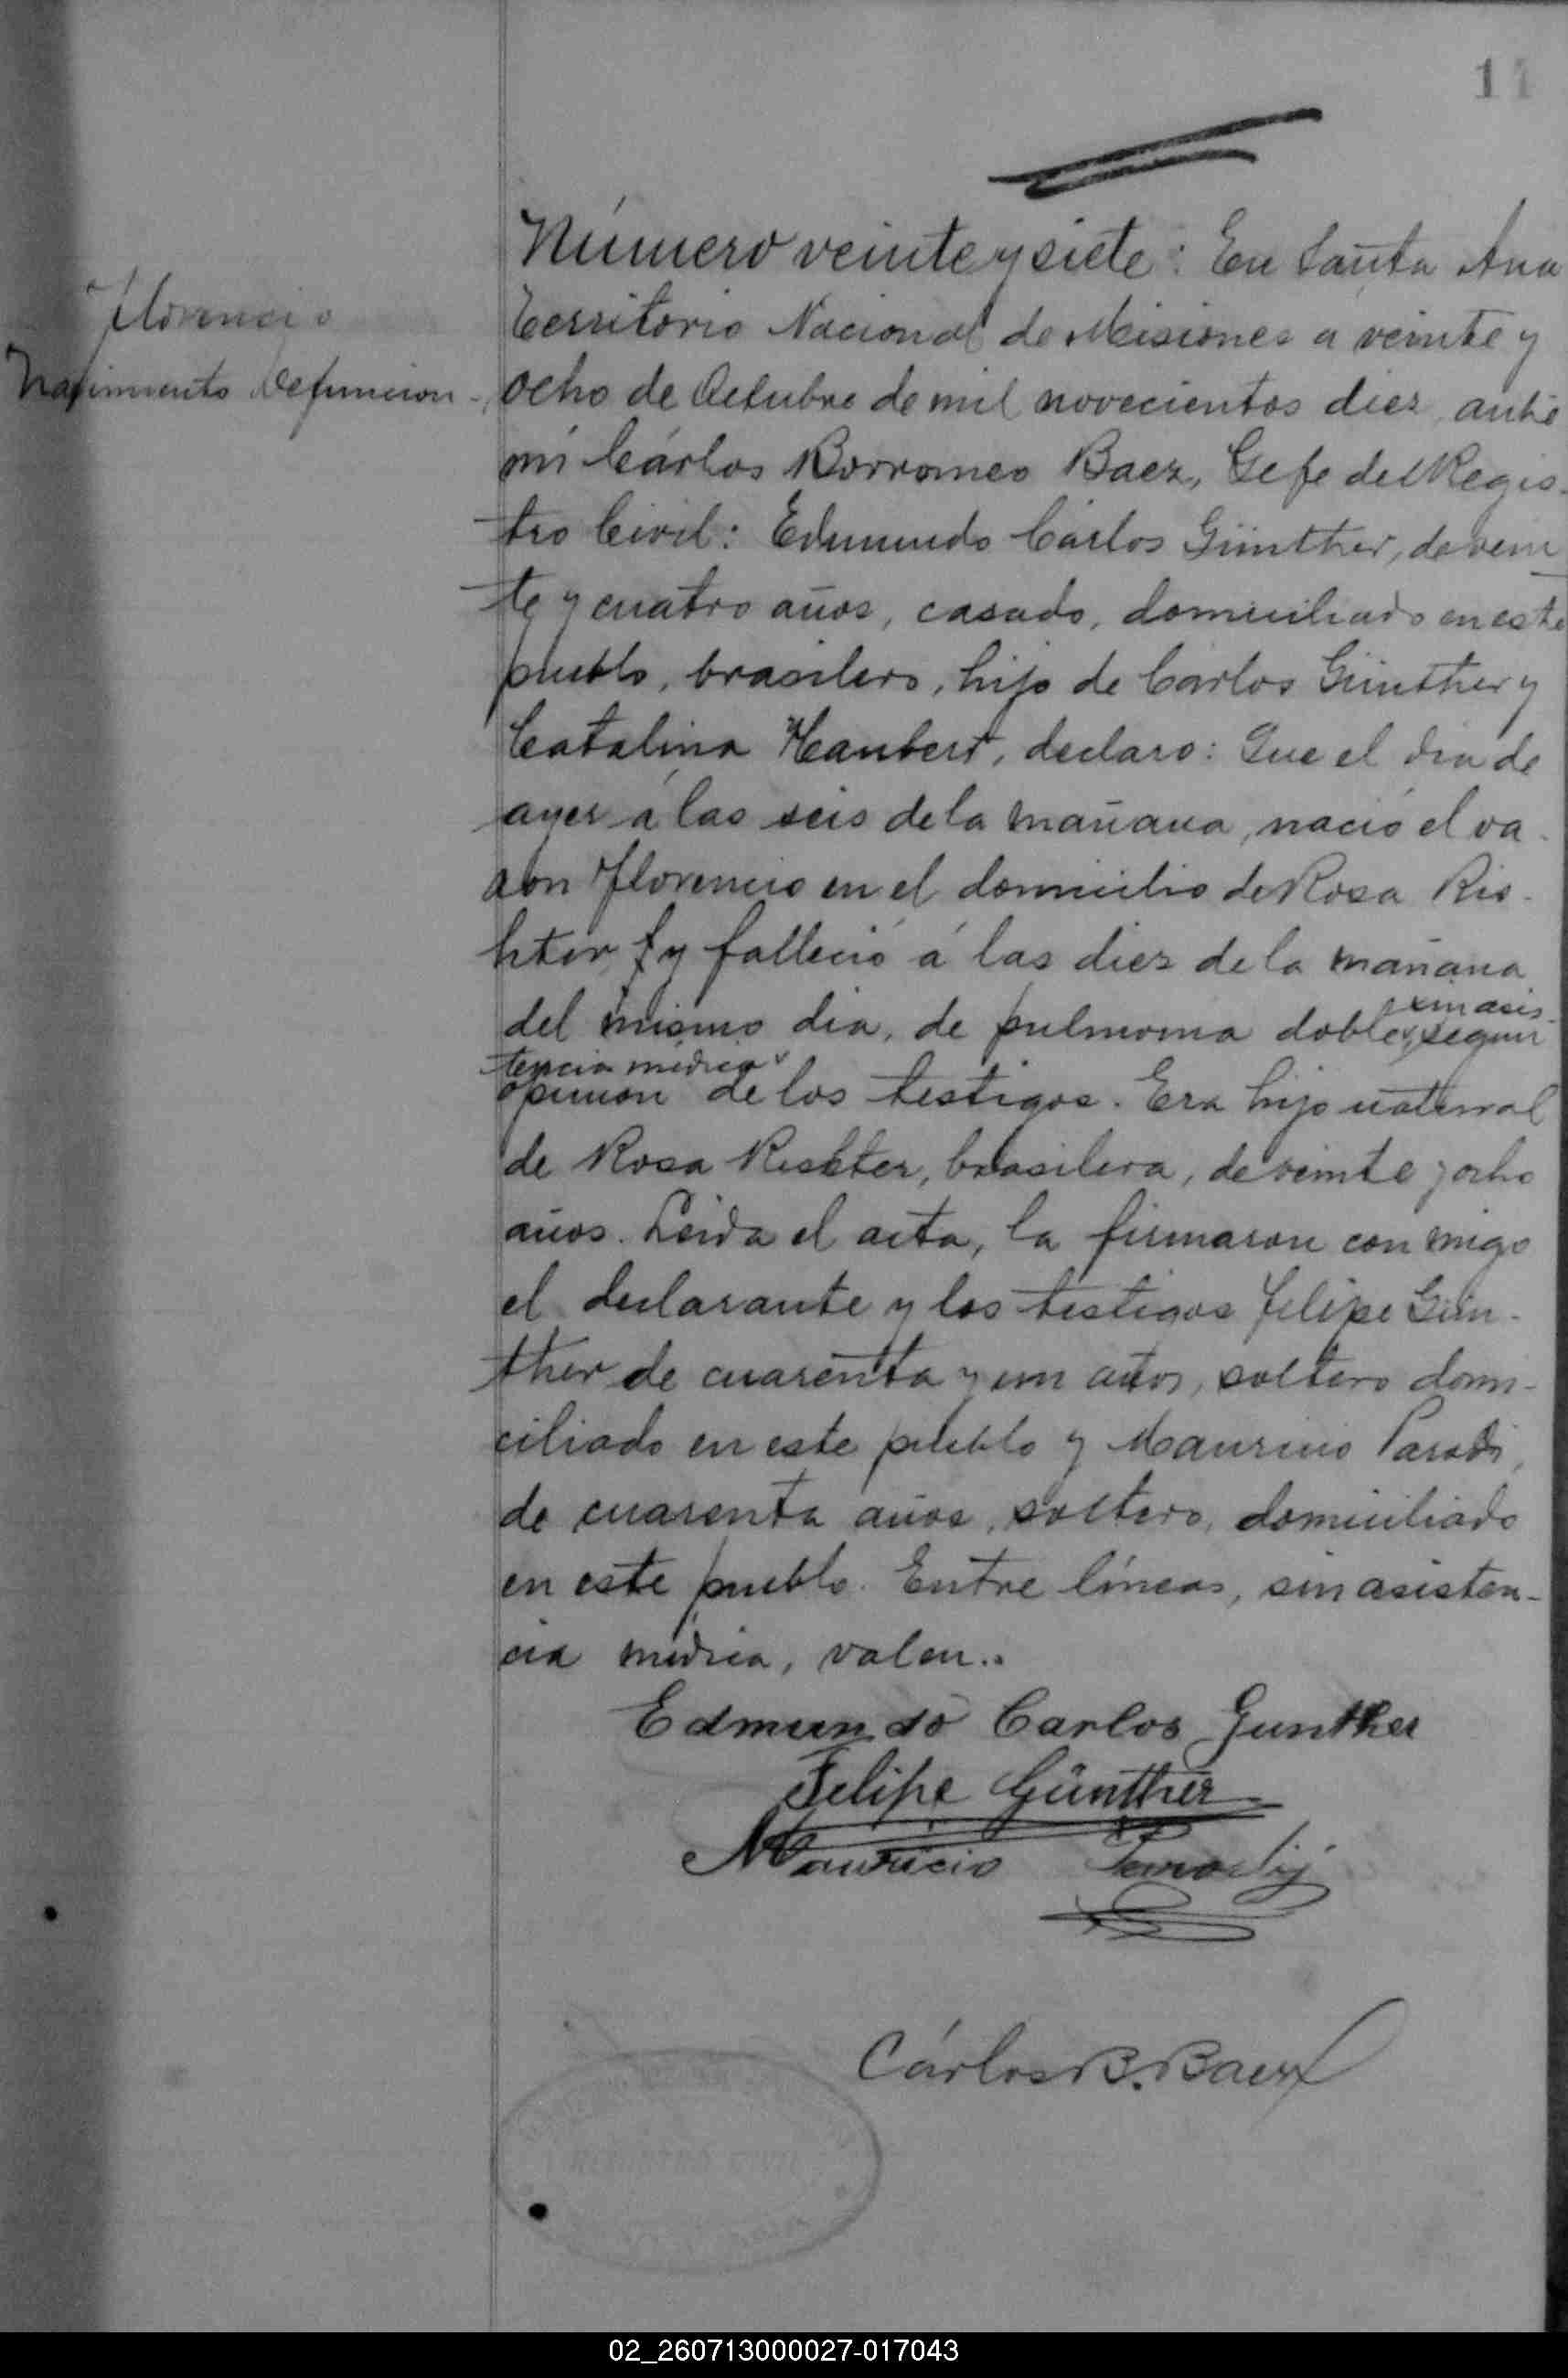 11
Número veinte y siete: En Santa Ana
Florencio
Territorio Nacional de Misiones a veinte y
Nacimiento Defuncion -
ocho de Octubre de mil novecientos diez, ante
mi Cárlos Borromeo Baez, Gefe del Regis-
tro Civil: Edmundo Cárlos Günther, de vein
te y cuatro años, casado, domiciliado en este
pueblo, brasilero, hijo de Carlos Günther y
Catalina Haubert, declaro: Que el dia de
ayer á las seis de la mañana, nació el va-
ron Florencio en el domicilio de Rosa Ris-
hter, y falleció á las diez de la mañana
sin asis-
del mismo dia, de pulmonia doble, segun
tencia médica
opinion de los testigos. Era hijo natural
de Rosa Rishter, brasilera, de veinte y ocho
años. Leida el acta, la firmaron con migo
el declarante y los testigos Felipe Gün-
ther de cuarenta y un años, soltero domi-
ciliado en este pueblo y Mauricio Parodi,
de cuarenta años, soltero, domiciliado
en este pueblo. Entre líneas, sin asisten-
cia médica, valen..
Edmundo Carlos Gunther
Felipe Günther
Mauricio Parodij
Cárlos B. Baez
REGISTRO CIVIL
02_260713000027-017043